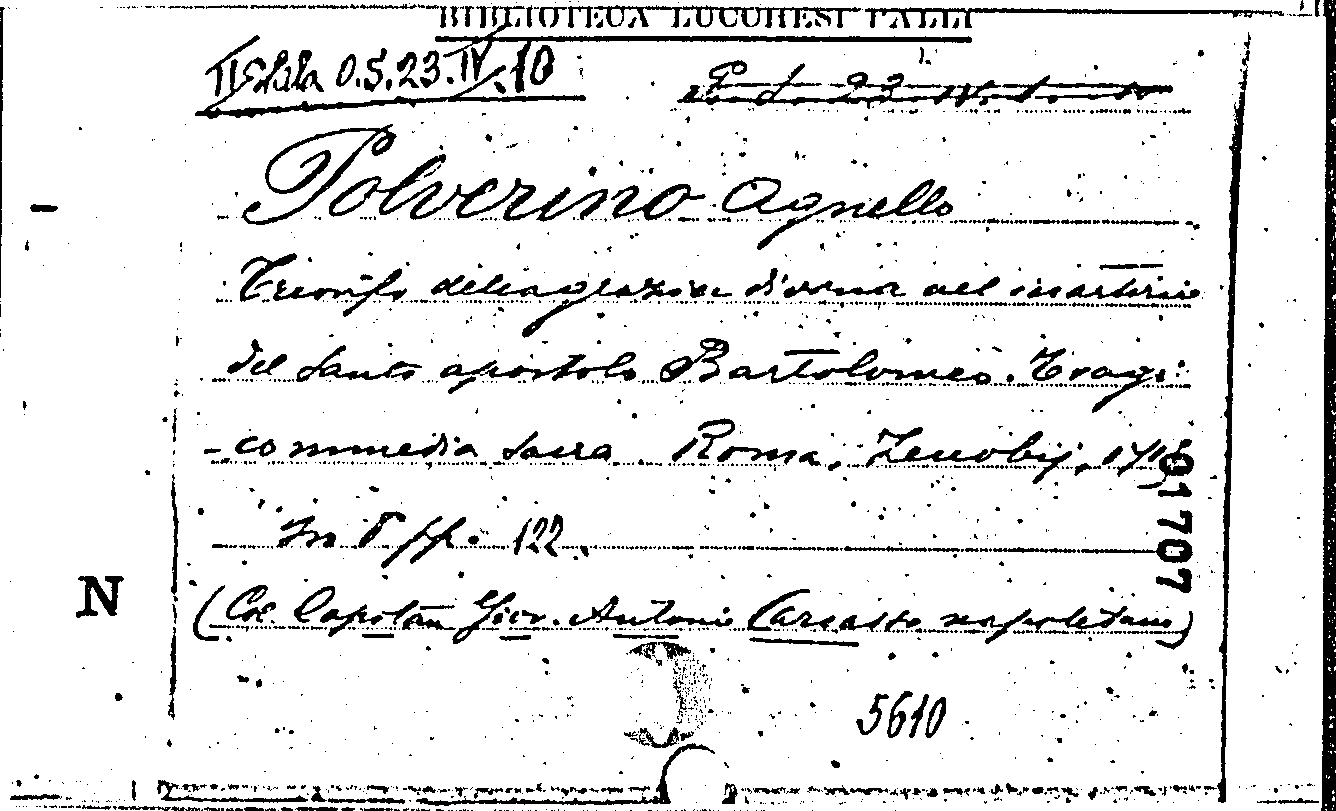 BIBLIOTECA LUCCHESI PALLI
II Sala 0.5.23.IV.10
Polverino Agnello
Trionfo della grazia divina nel martirio
del Santo apostolo Bartolomeo. Tragi
-commedia sacra. Roma, Zenobij,
In 8 pp. 122.
(Col Capitan Giov. Antonio napoletano)
917707
N
5610